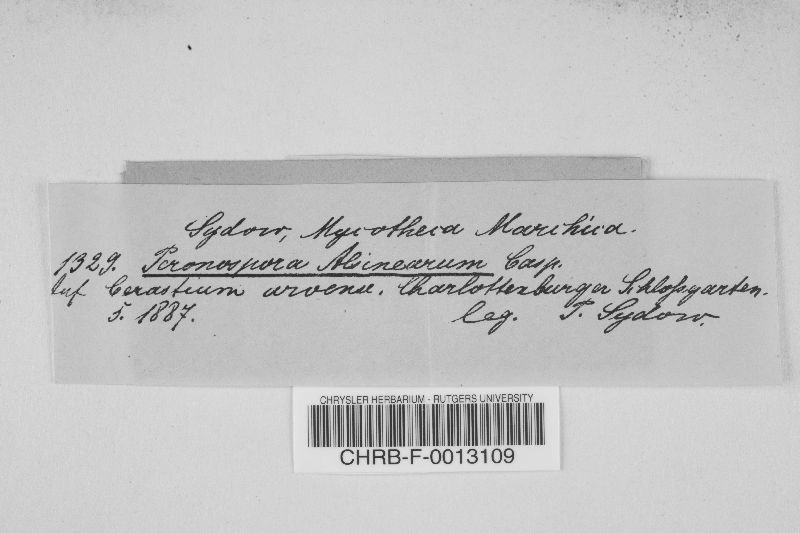 Sydow, Mycotheca Marchica.
1329. Peronospora Alsinearum Casp.
Auf Cerastium arvense. Charlottenburger Schloßgarten.
5. 1887. leg. P. Sydow.
CHRYSLER HERBARIUM - RUTGERS UNIVERSITY
CHRB-F-0013109